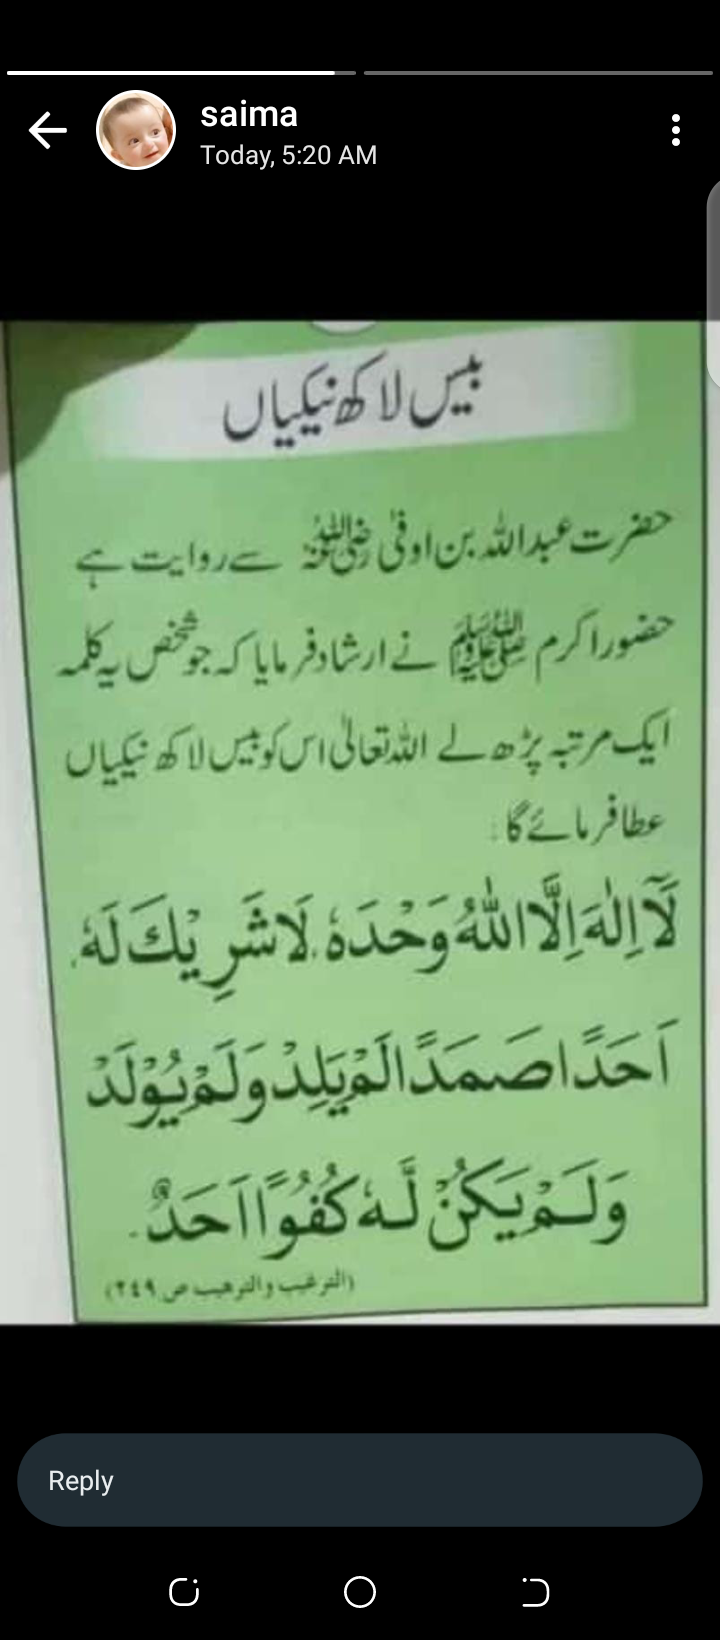 saima
Today, 5:20 AM
بیس لاکھ نیکیاں
حضرت عبداللہ بن اوفیٰ رضی اللہ عنہ سے روایت ہے
حضور اکرم صلی اللہ علیہ وسلم نے ارشاد فرمایا کہ جو شخص یہ کلمہ
ایک مرتبہ پڑھ لے اللہ تعالیٰ اس کو بیس لاکھ نیکیاں
عطا فرمائے گا:
لَآ اِلٰهَ اِلَّا اللّٰهُ وَحْدَهٗ لَا شَرِيْكَ لَهٗ
اَحَدًا صَمَدًا لَمْ يَلِدْ وَلَمْ يُوْلَدْ
وَلَمْ يَكُنْ لَّهٗ كُفُوًا اَحَدٌ۔
(الترغيب والترهيب ص ۲٤۹)
Reply